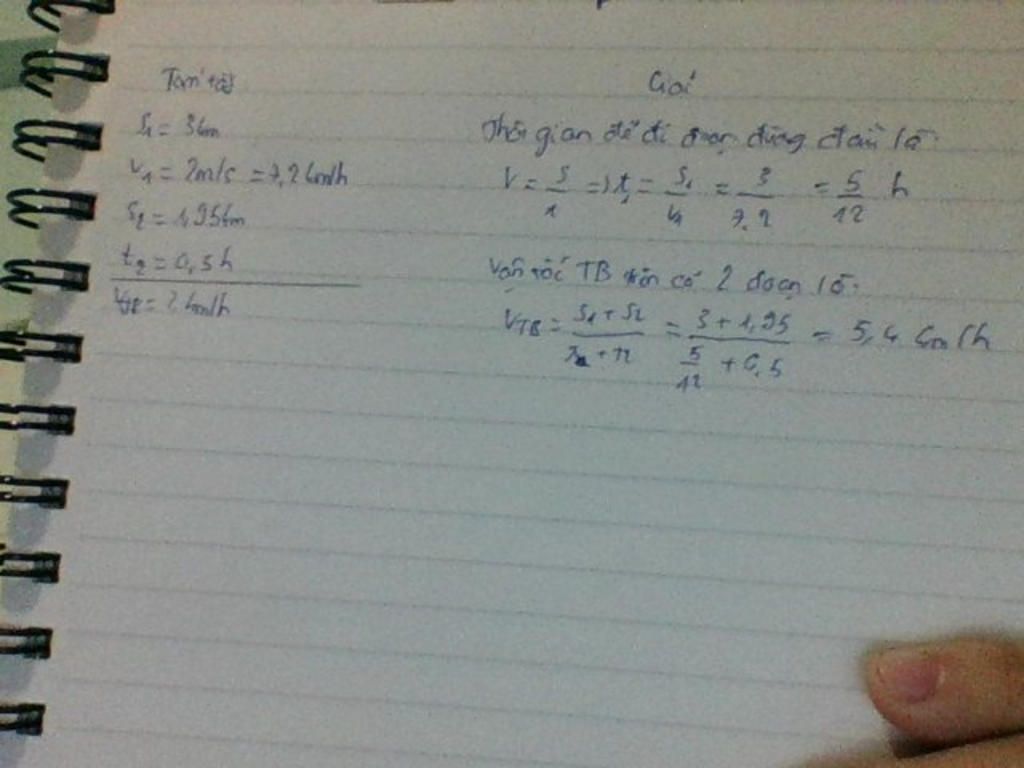 Tóm tắt
S1 = 3km
V1 = 2m/s = 7,2km/h
S2 = 1,95km
t2 = 0,5h
VTB = ? km/h
Giải
Thời gian để đi đoạn đường đầu là:
V = S/t => t1 = S1/V1 = 3/7,2 = 5/12 h
Vận tốc TB trên cả 2 đoạn là:
VTB = S1 + S2/t1 + t2 = 3 + 1,95/5/12 + 0,5 = 5,4 km/h